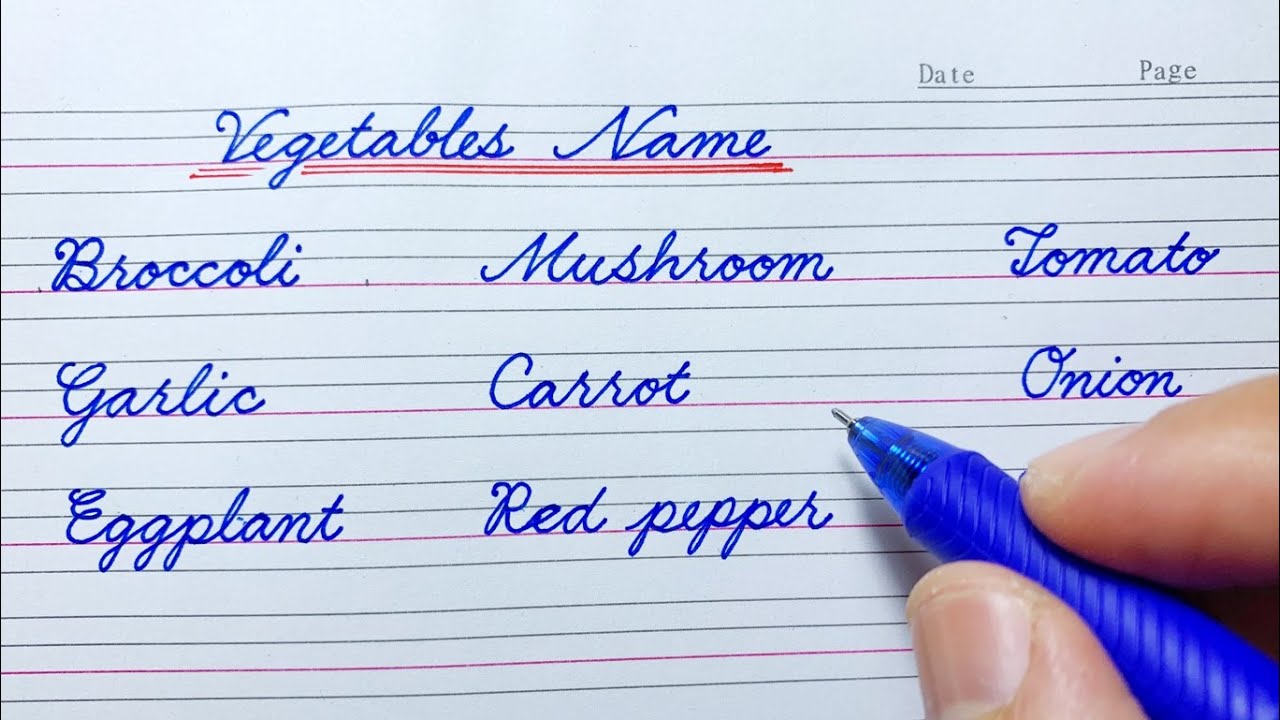 Date Page
Vegetables Name
Broccoli Mushroom Tomato
Garlic Carrot Onion
Eggplant Red pepper